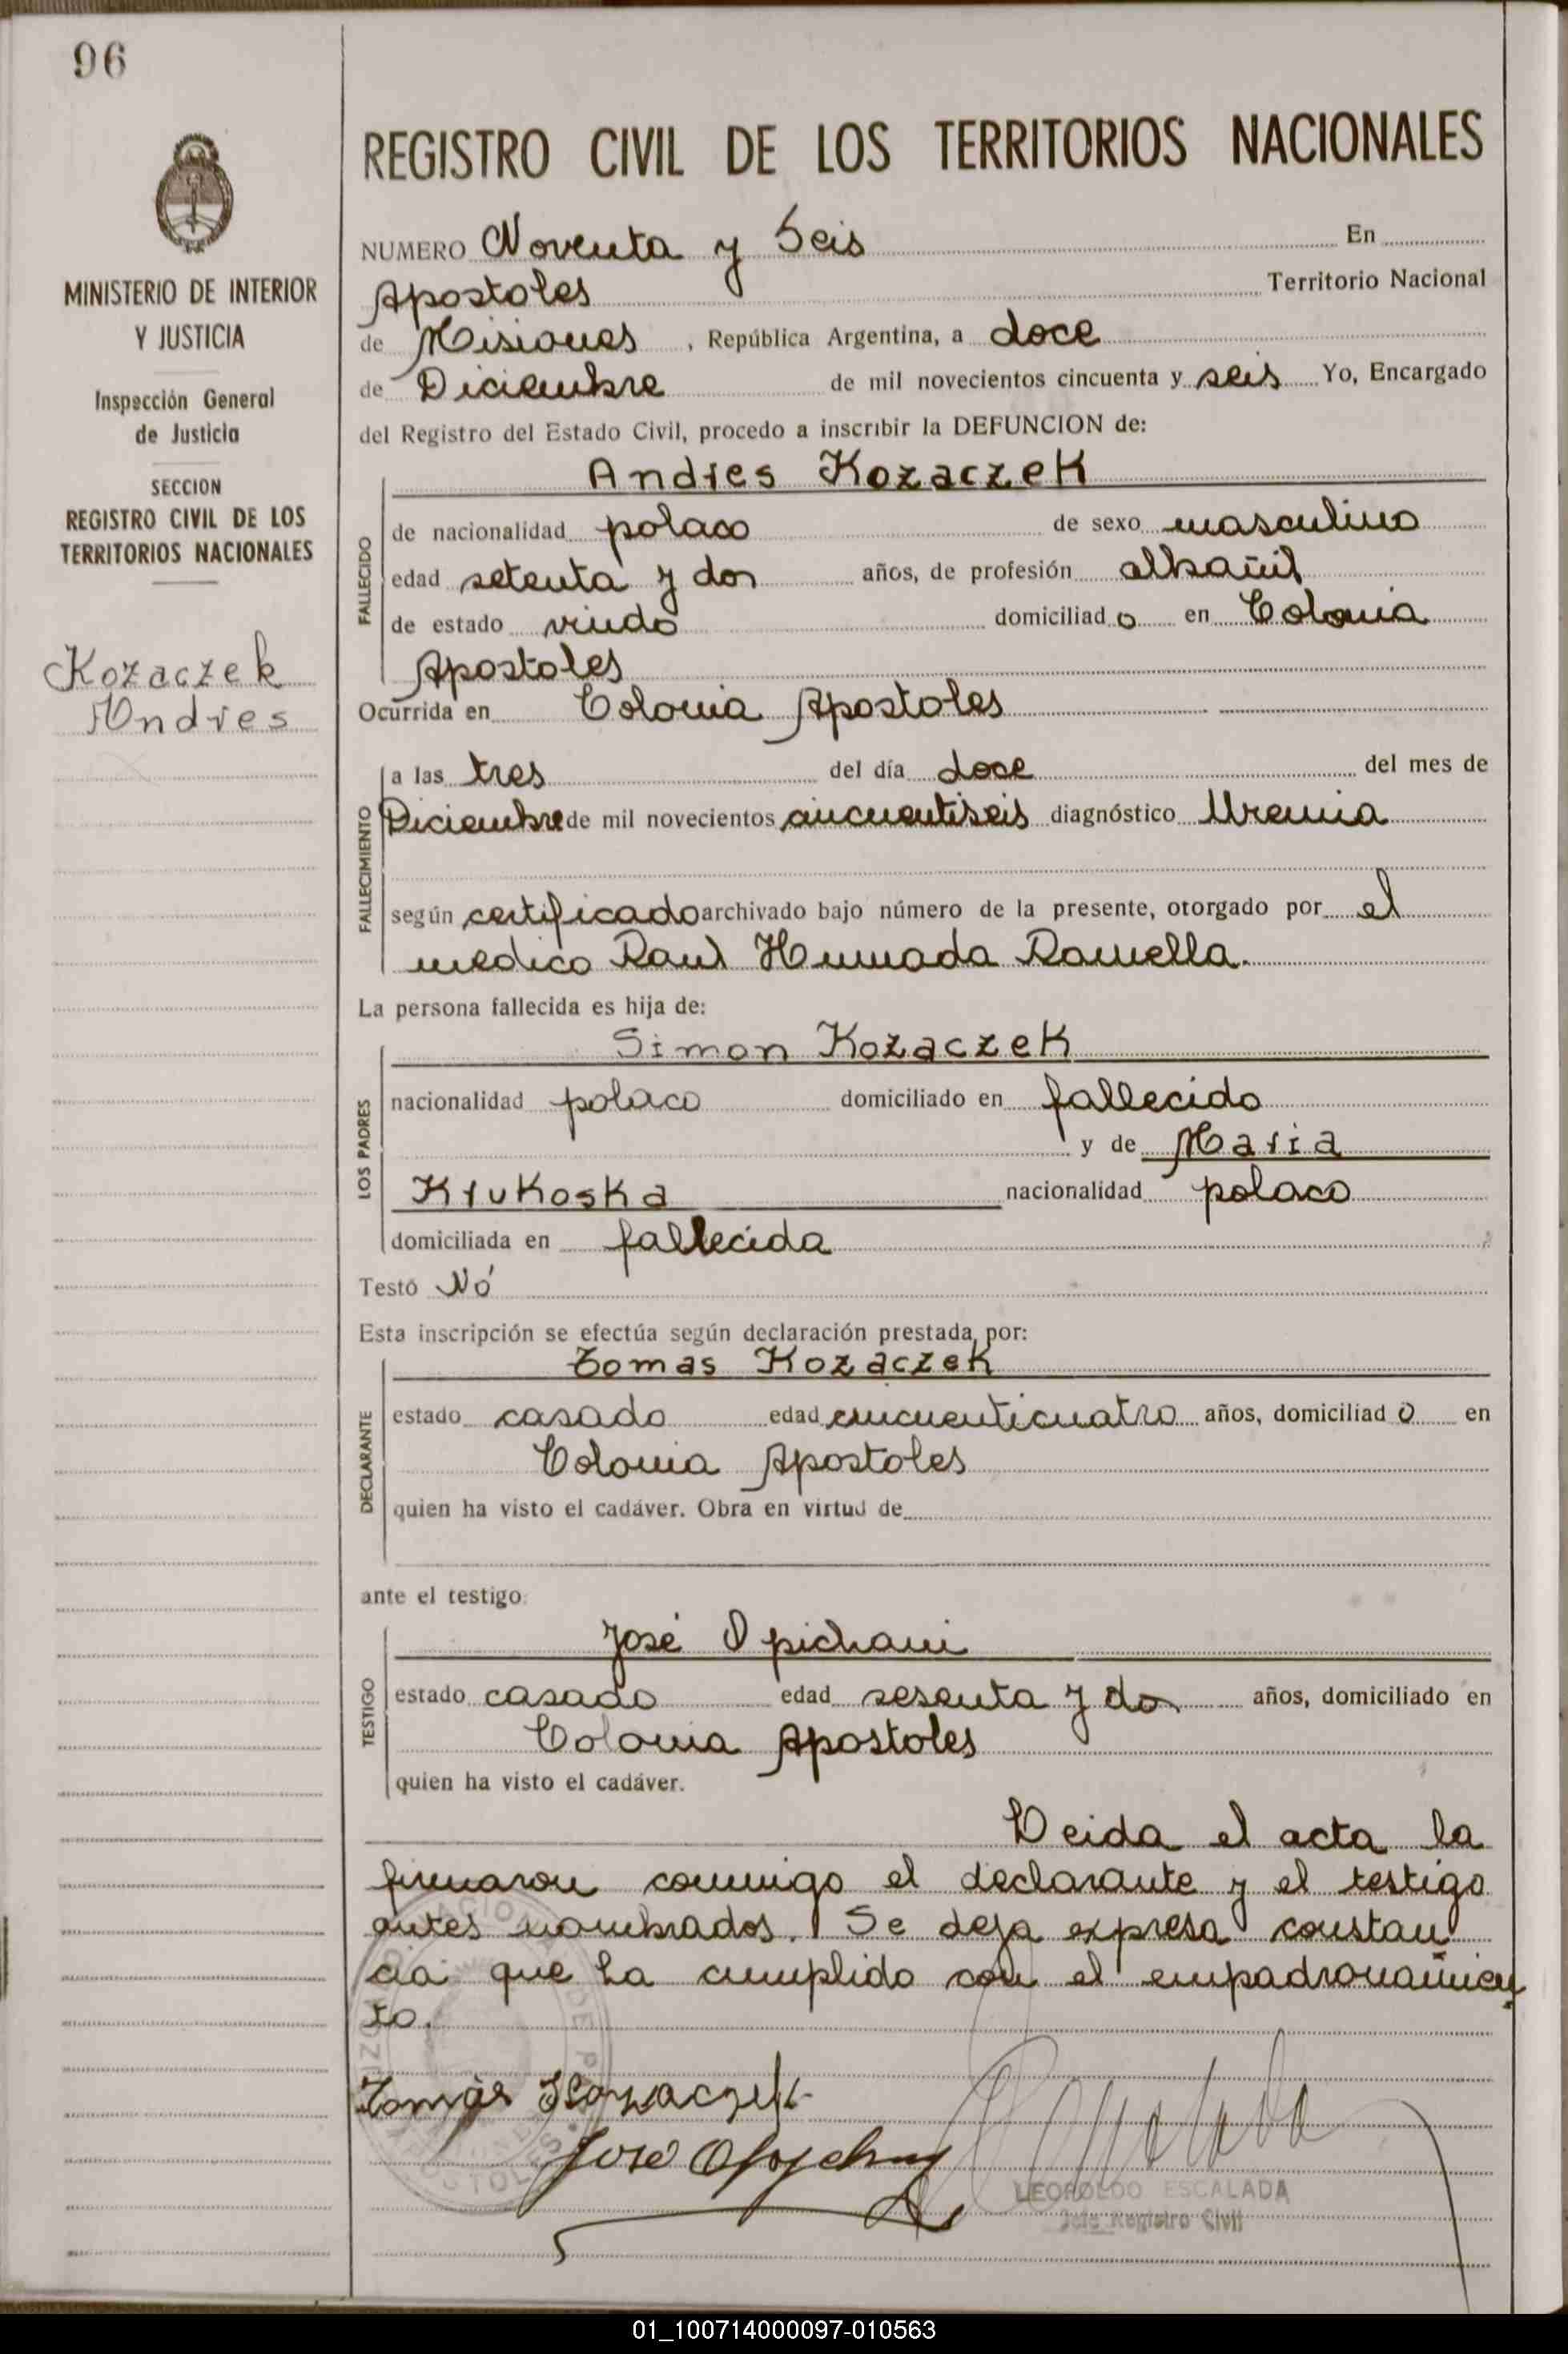 96
MINISTERIO DE INTERIOR
Y JUSTICIA
Inspección General
de Justicia
SECCION
REGISTRO CIVIL DE LOS
TERRITORIOS NACIONALES
Kozaczek
Andres
REGISTRO CIVIL DE LOS TERRITORIOS NACIONALES
NUMERO Noventa y Seis En
Apostoles Territorio Nacional
de Misiones, República Argentina, a doce
de Diciembre de mil novecientos cincuenta y seis Yo, Encargado
del Registro del Estado Civil, procedo a inscribir la DEFUNCION de:
Andres Kozaczek
FALLECIDO
de nacionalidad polaco de sexo masculino
edad setenta y dos años, de profesión albañil
de estado viudo domiciliado en Colonia
Apostoles
Ocurrida en Colonia Apostoles
FALLECIMIENTO
a las tres del día doce del mes de
Diciembre de mil novecientos cincuentiseis diagnóstico Uremia
según certificado archivado bajo número de la presente, otorgado por el
medico Raul Humada Ramella.
La persona fallecida es hija de:
LOS PADRES
Simon Kozaczek
nacionalidad polaco domiciliado en fallecido
y de Maria
Krukoska nacionalidad polaco
domiciliada en fallecida
Testó Nó
Esta inscripción se efectúa según declaración prestada, por:
DECLARANTE
Tomas Kozaczek
estado casado edad cincuenticuatro años, domiciliado en
Colonia Apostoles
quien ha visto el cadáver. Obra en virtud de
ante el testigo:
TESTIGO
José Opichani
estado casado edad sesenta y dos años, domiciliado en
Colonia Apostoles
quien ha visto el cadáver.
Leida el acta la
firmaron conmigo el declarante y el testigo
antes nombrados. Se deja expresa constan
cia que ha cumplido con el empadronamien
to.
Tomás Kozaczek
José
LEOPOLDO ESCALADA
Jefe Registro Civil
01_100714000097-010563